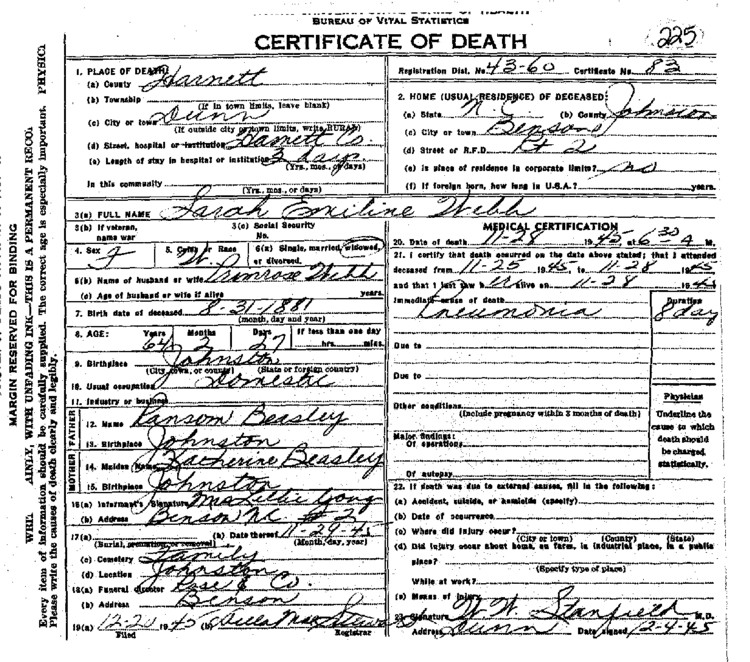 BUREAU OF VITAL STATISTICS
CERTIFICATE OF DEATH
225
MARGIN RESERVED FOR BINDING
AINLY, WITH UNFADING INK—THIS IS A PERMANENT RECO
Every item of information should be carefully supplied. The correct age is especially important. PHYSICI
Please write the causes of death clearly and legibly.
1. PLACE OF DEATH:
(a) County Harnett
(b) Township
(If in town limits, leave blank)
(c) City or town Dunn
(If outside city or town limits, write RURAL)
(d) Street, hospital or institution Harnett Co.
(e) Length of stay in hospital or institution 3 days
(Yrs., mos., or days)
In this community
(Yrs., mos., or days)
Registration Dist. No. 43-60 Certificate No. 83
2. HOME (USUAL RESIDENCE) OF DECEASED:
(a) State N C (b) County Johnston
(c) City or town Benson
(d) Street or R.F.D. Rt 2
(e) Is place of residence in corporate limits? no
(f) If foreign born, how long in U.S.A.? years.
3(a) FULL NAME Sarah Emiline Webb
3(b) If veteran, name war
3(c) Social Security No.
4. Sex F 5. Color or Race W. 6(a) Single, married, widowed, or divorced.
6(b) Name of husband or wife Primrose Webb
(c) Age of husband or wife if alive years.
7. Birth date of deceased 8-31-1881
(month, day and year)
8. AGE: Years Months Days If less than one day
64 2 27 hrs. mins.
9. Birthplace Johnston
(City, town, or county) (State or foreign country)
10. Usual occupation Domestic
11. Industry or business
FATHER
12. Name Ransom Beasley
13. Birthplace Johnston
MOTHER
14. Maiden Name Katherine Beasley
15. Birthplace Johnston
16(a) Informant's Signature Mrs Lillie
(b) Address Benson NC # 2
17(a) (b) Date thereof 11-29-45
(Burial, cremation, or removal) (Month, day, year)
(c) Cemetery Family
(d) Location Johnston
18(a) Funeral director Rose & Co.
(b) Address Benson
19(a) 12-20 1945 (b)
Filed Registrar
MEDICAL CERTIFICATION
20. Date of death 11-28 1945 at 6 30 a M.
21. I certify that death occurred on the date above stated; that I attended
deceased from 11-25 1945 to 11-28 1945
and that I last saw her alive on 11-28 1945
Immediate cause of death Duration
Pneumonia 8 day
Due to
Due to
Other conditions
(Include pregnancy within 3 months of death)
Major findings:
Of operations
Of autopsy
Physician
Underline the cause to which death should be charged statistically.
22. If death was due to external causes, fill in the following:
(a) Accident, suicide, or homicide (specify)
(b) Date of occurrence
(c) Where did injury occur?
(City or town) (County) (State)
(d) Did injury occur about home, on farm, in industrial place, in a public
place?
(Specify type of place)
While at work?
(e) Means of injury
23. Signature W. W. Stanfield M.D.
Address Dunn Date signed 12-4-45